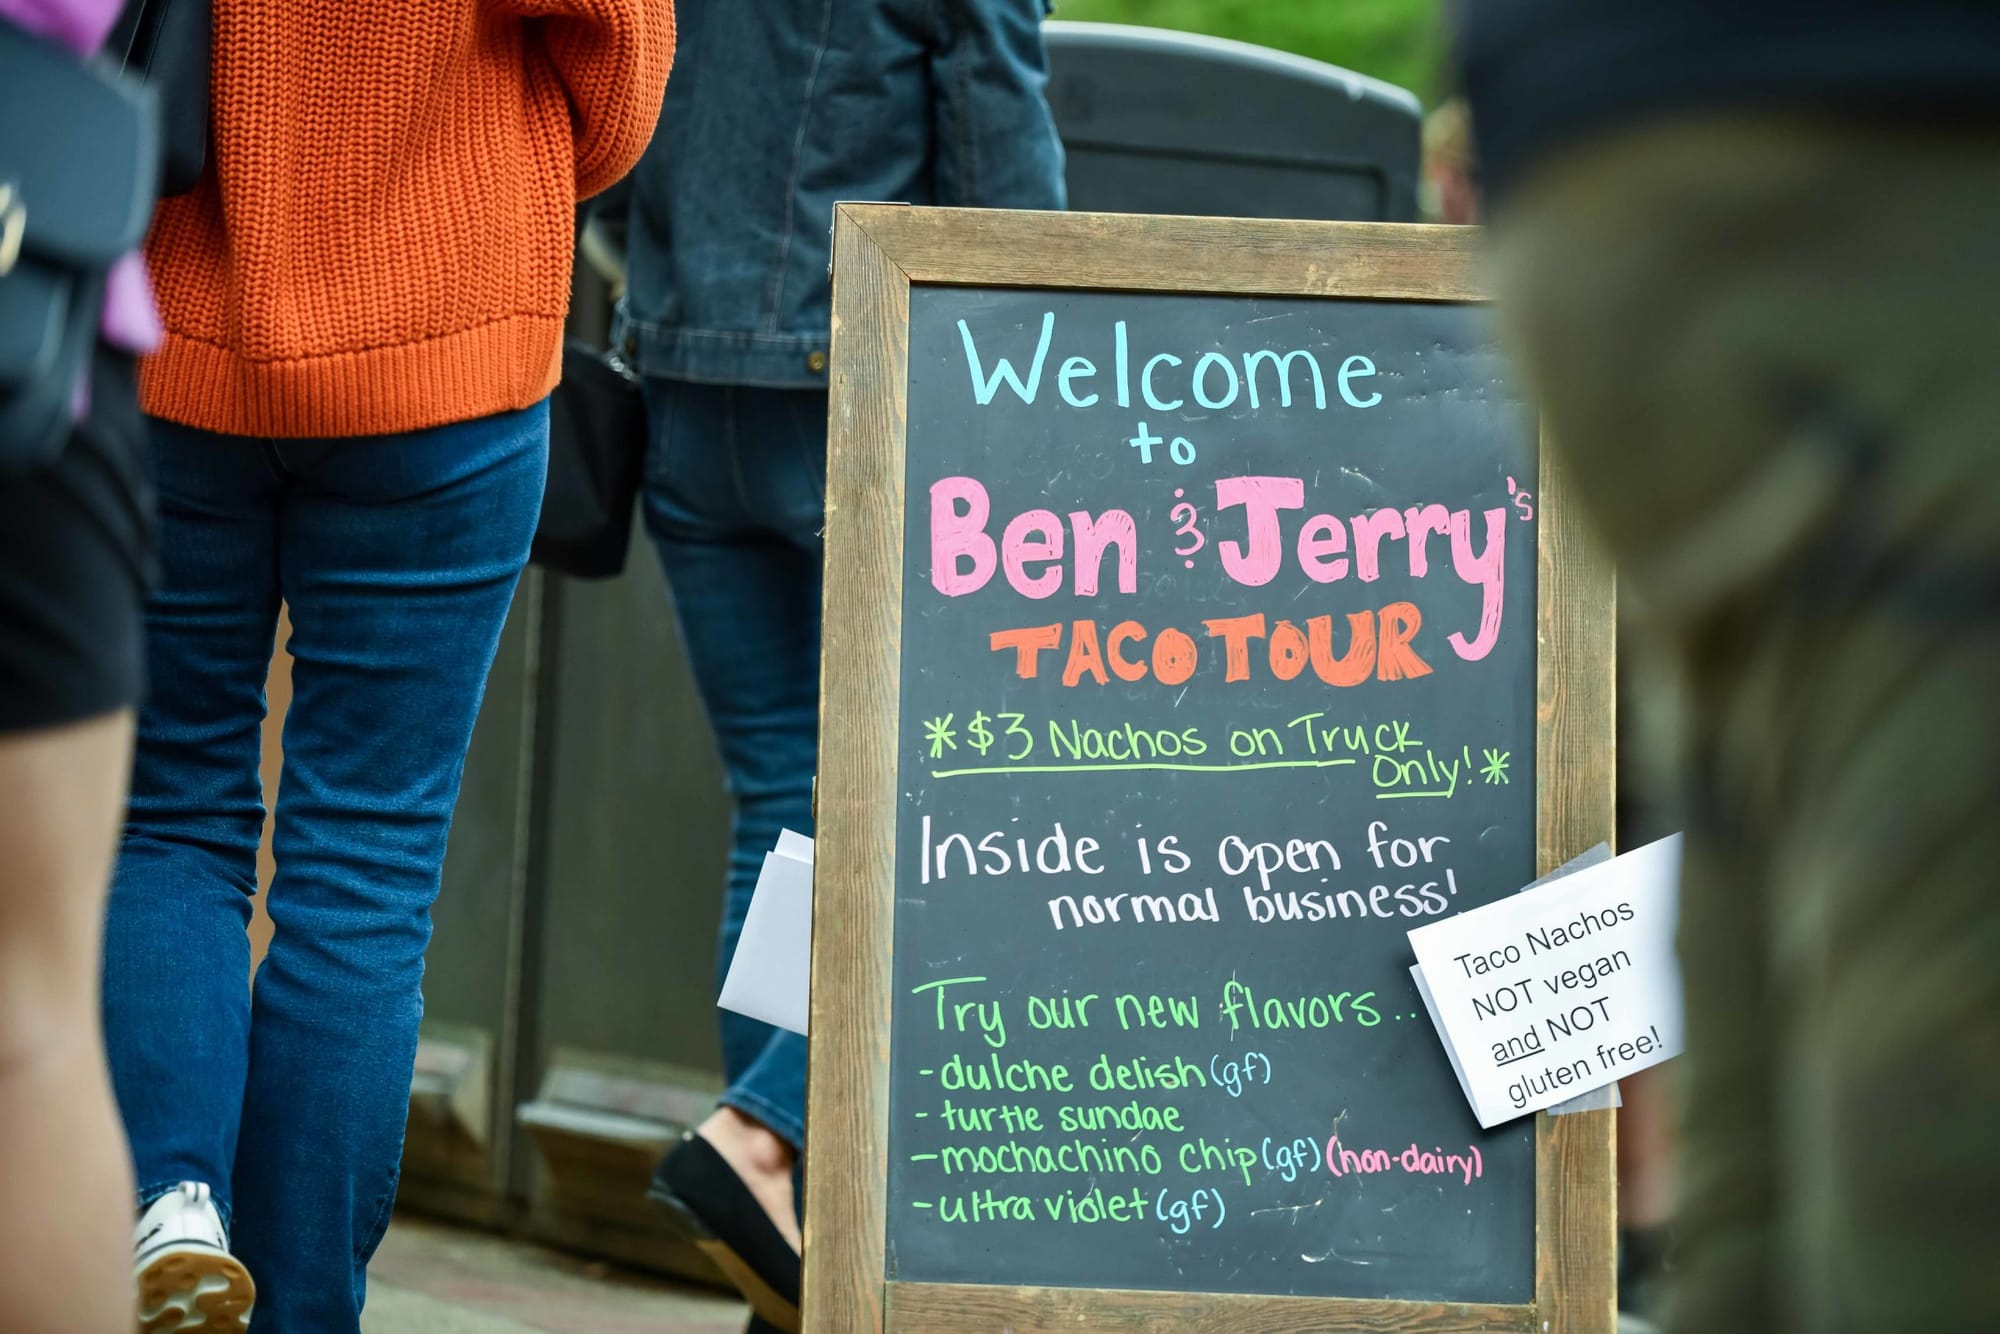 Welcome
to
Ben & Jerry's
TACO TOUR
*$3 Nachos on Truck
only!*
Inside is open for
normal business!
Try our new flavors..
-dulche delish (gf)
- turtle sundae
-mochachino chip (gf) (non-dairy)
-ultra violet (gf)
Taco Nachos
NOT vegan
and NOT
gluten free!